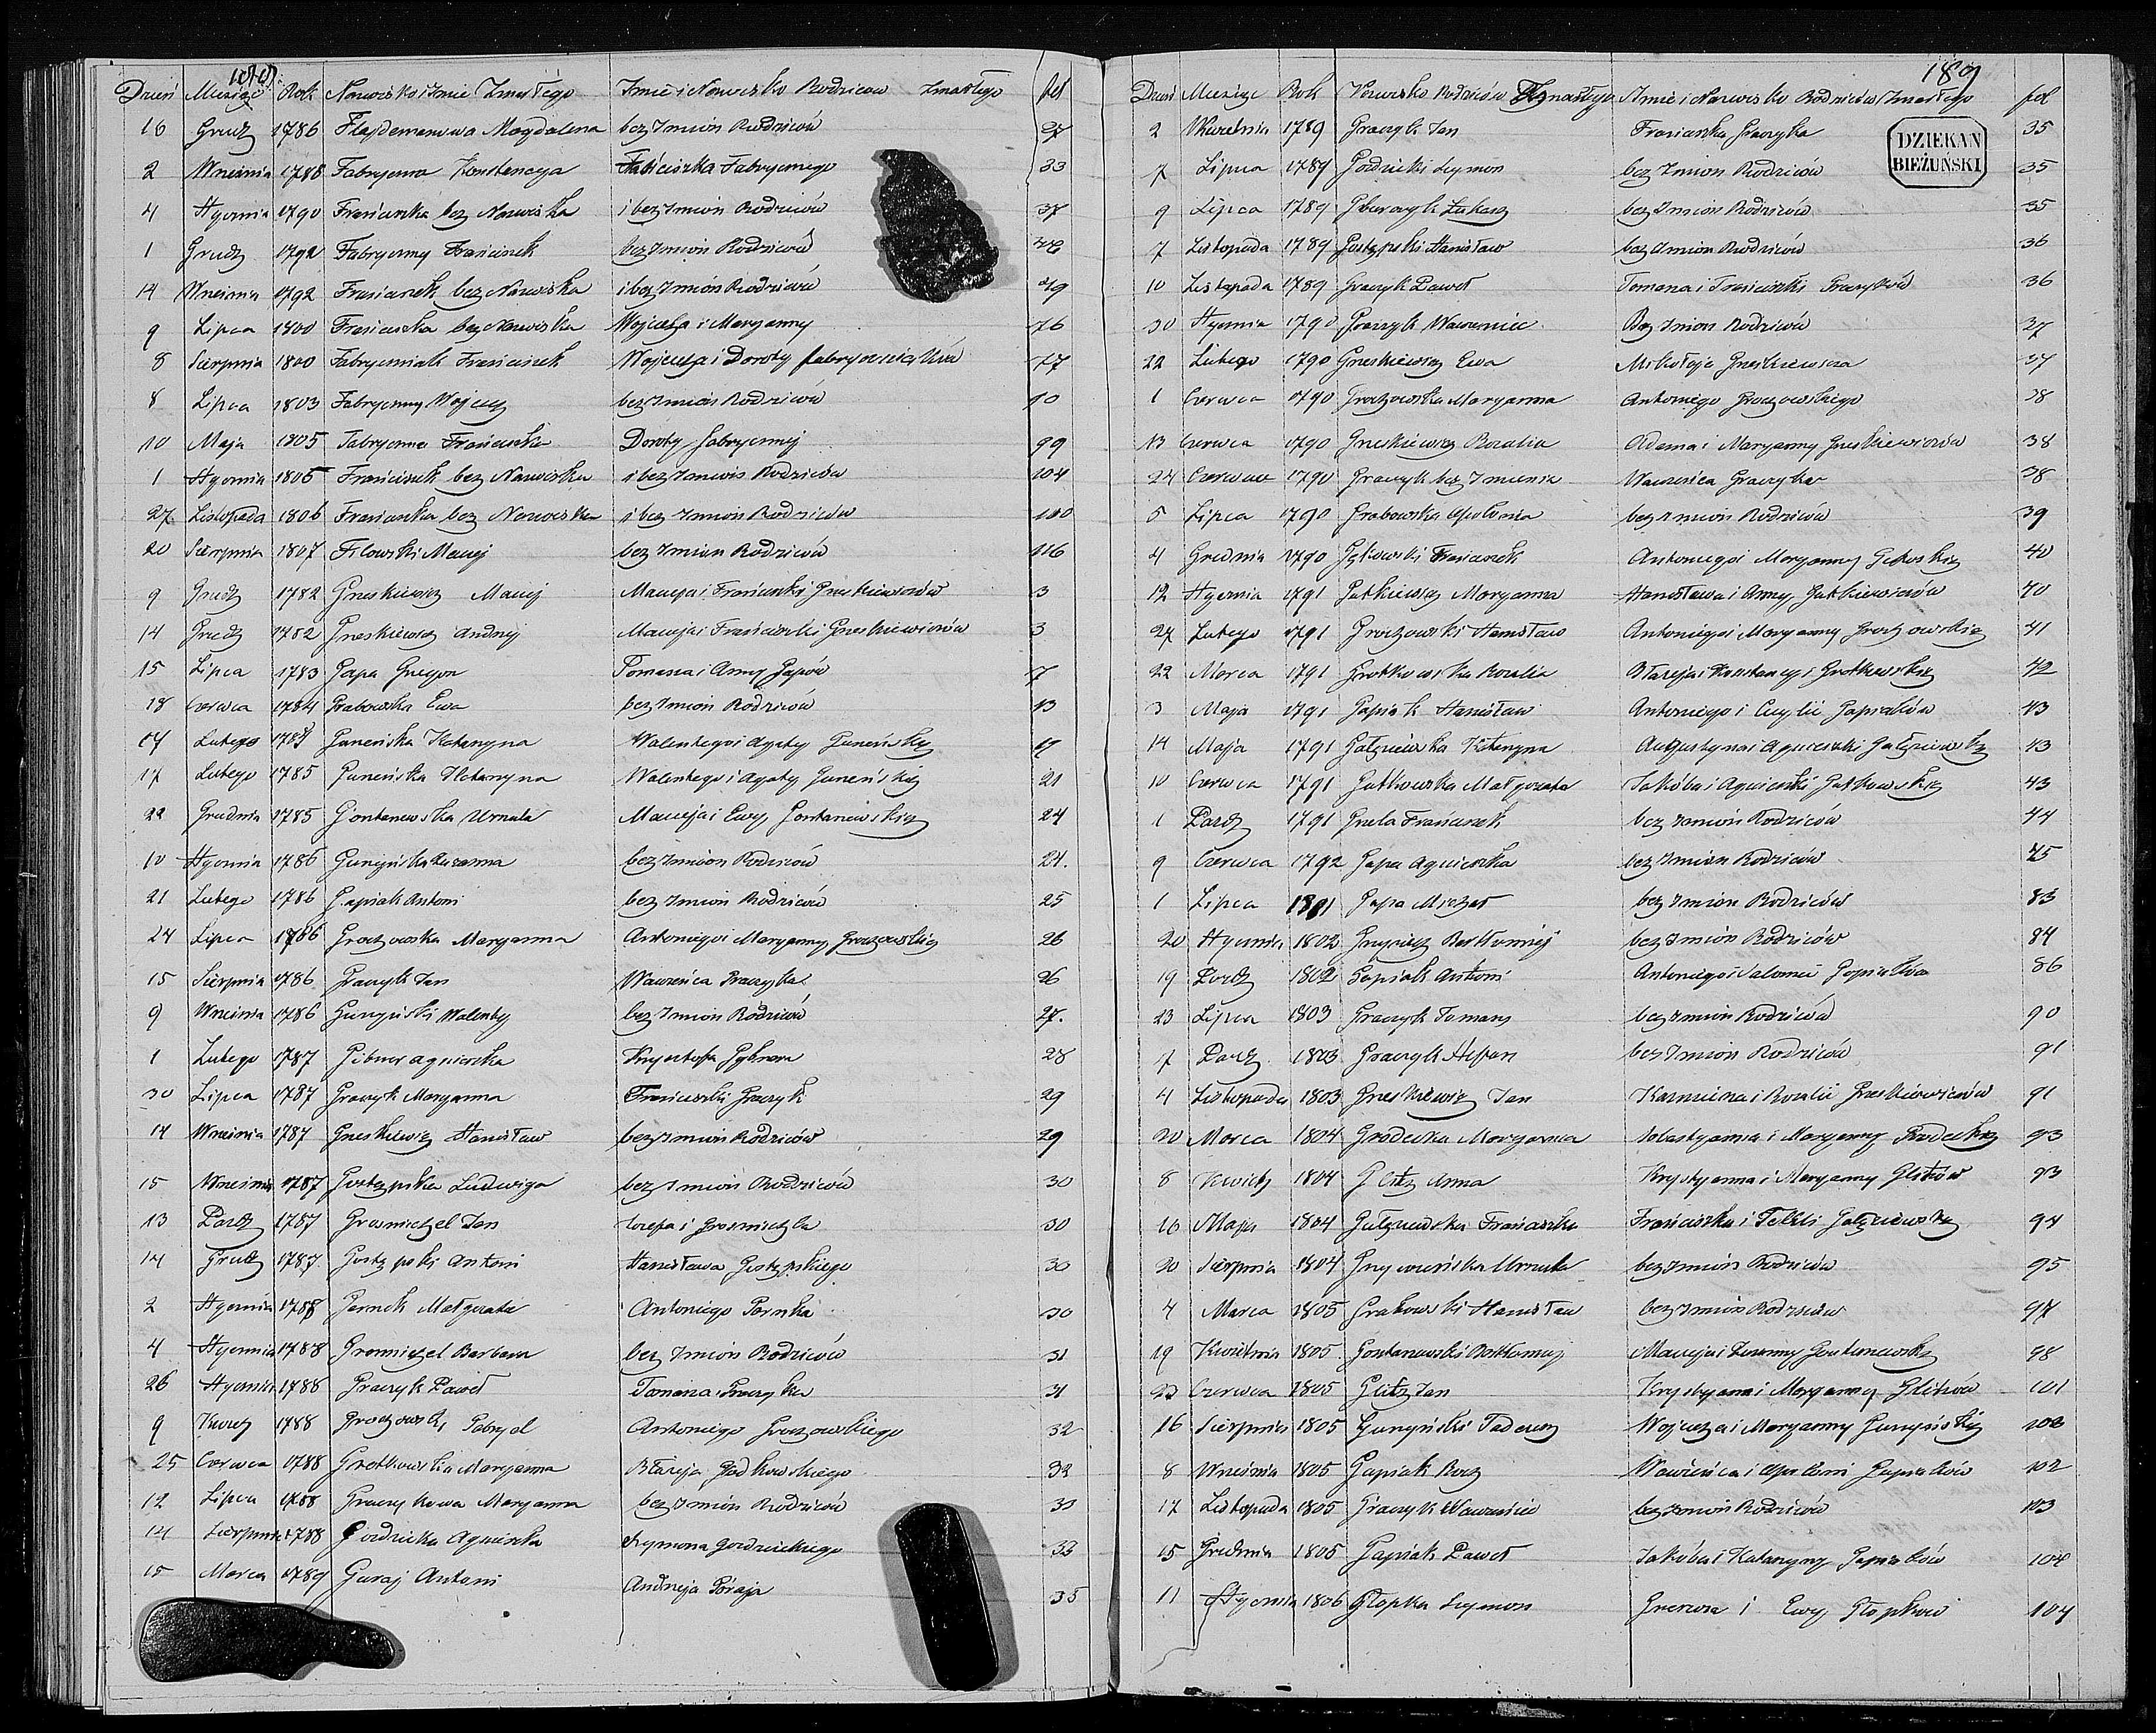 188.
Dzień Miesiąc Rok Nazwisko i Imie Zmarłego Imie i Nazwisko Rodziców Zmarłego fol
16 Grudz 1786 Flajdemanowa Magdalena bez Imion Rodziców 27
2 Września 1788 Fabryczna Konstancya Franciszka Fabrycznego 33
4 Stycznia 1790 Franciszka bez Nazwiska i bez Imion Rodziców 37
1 Grudz 1792 Fabryczny Franciszek bez Imion Rodziców
14 Września 1792 Franciszek bez Nazwiska i bez Imion Rodziców 49
9 Lipca 1800 Franciszka bez Nazwiska Wojciecha i Maryanny 76
8 Sierpnia 1800 Fabryczniak Franciszek Wojciecha i Doroty 77
8 Lipca 1803 Fabryczny Wojciech bez Imion Rodziców
10 Maja 1805 Fabryczna Franciszka Doroty Fabrycznej 99
1 Stycznia 1805 Franciszek bez Nazwiska i bez Imion Rodziców 104
27 Listopada 1806 Franciszka bez Nazwiska i bez Imion Rodziców 110
20 Sierpnia 1807 Filowski Maciej bez Imion Rodziców 116
9 Grudz 1782 Greskiewicz Maciej Macieja i Franciszki Greskiewiczów 3
14 Grudz 1782 Greskiewicz Andrzej Macieja i Franciszki Greskiewiczów 3
15 Lipca 1783 Gapa Gregor Tomasza i Anny Gapów 7
18 Czerwca 1784 Grabowska Ewa bez Imion Rodziców 13
17 Lutego Katarzyna Walentego i Agaty
17 Lutego 1785 Katarzyna Walentego i Agaty 21
22 Grudnia 1785 Gontarewska Urszula Macieja i Ewy Gontarewskich 24
10 Stycznia 1786 Gurzyńska Zuzanna bez Imion Rodziców 24.
21 Lutego 1786 Gapiak Antoni bez Imion Rodziców 25
24 Lipca 1786 Groczowska Maryanna Antoniego i Maryanny Groczowskich 26
15 Sierpnia 1786 Graczyk Jan Wawrzeńca Graczyka 26
9 Września 1786 Gurzyński Walenty bez Imion Rodziców 27.
1 Lutego 1787 Gibner Agnieszka Krysztofa Gybnera 28
30 Lipca 1787 Graczyk Maryanna Franciszki Graczyk 29
14 Września 1787 Greskiewicz Stanisław bez Imion Rodziców 29
15 Września 1787 Gostępska Ludwiga bez Imion Rodziców 30
13 Paźdz 1787 Grosmichel Jan Jozefa i Grosmichla 30
14 Grudz 1787. Gostępski Antoni Stanisława Gostępskiego 30
2 Stycznia 1788 Małgorzata Antoniego 30
4 Stycznia 1788 Grosmichel Barbara bez Imion Rodziców 31
26 Stycznia 1788 Graczyk Paweł Tomasza Graczyka 31
9 1788 Groczowski Gabryel Antoniego Groczowskiego 32
25 Czerwca 1788 Grotkowska Maryanna Błażeja Godkowskiego 32
12 Lipca 1788 Graczykowa Maryanna bez Imion Rodziców 33
14 Sierpnia 1788 Gozdzicka Agnieszka Szymona Gozdzickiego 33
15 Marca 1789 Guraj Antoni Andrzeja Góraja 35
189
Dzień Miesiąc Rok Nazwisko Rodziców Zmarłego Imie i Nazwisko Rodziców Zmarłego fol
DZIEKAN
BIEŻUŃSKI
2 Kwietnia 1789 Graczyk Jan Franciszka Graczyka 35
7 Lipca 1789 Gozdzicki Szymon bez Imion Rodziców 35
9 Lipca 1789 Gburczyk Łukasz bez Imion Rodziców 35
7 Listopada 1789 Gostępski Stanisław bez Imion Rodziców 36
10 Listopada 1789 Graczyk Paweł Tomasza i Franciszki Graczyków 36
30 Stycznia 1790 Graczyk Wawrzeniec Bez Imion Rodziców 37
22 Lutego 1790 Greskiewicz Ewa Mikołaja Greskiewicza 37
1 Czerwca 1790 Groczowska Maryanna Antoniego Groczowskiego 38
13 Czerwca 1790 Greskiewicz Rozalia Adama i Maryanny Greskiewiczów 38
24 Czerwca 1790 Graczyk bez Imienia Wawrzeńca Graczyka 38
5 Lipca 1790 Grabowska Apolonia bez Imion Rodziców 39
4 Grudnia 1790 Franciszek Antoniego i Maryanny 40
12 Stycznia 1791 Gutkiewicz Maryanna Stanisława i Anny Gutkiewiczów 40
27 Lutego 1791 Groczowski Stanisław Antoniego i Maryanny Groczowskich 41
22 Marca 1791 Grotkowska Rozalia Błażeja i Konstancyi Grotkowskich 42
3 Maja 1791 Gapiak Stanisław Antoniego i Cecylii Gapiaków 43
14 Maja 1791 Katarzyna Augustyna i Agnieszki 43
10 Czerwca 1791 Gutkowska Małgorzata Jakóba i Agnieszki Gutkowskich 43
1 Paźdz 1791 Grela Franciszek bez Imion Rodziców 44
9 Czerwca 1792 Gapa Agnieszka bez Imion Rodziców 45
1 Lipca 1801 Gapa Michał bez Imion Rodziców 83
20 Stycznia 1802 Bartłomiej bez Imion Rodziców 84
19 Paźdz 1802 Gapiak Antoni Antoniego i Salomei Gapiaków 86
23 Lipca 1803 Graczyk Tomasz bez Imion Rodziców 90
7 Paźdz 1803 Graczyk Stefan bez Imion Rodziców 91
4 Listopada 1803 Greskiewicz Jan Kazmierza i Rozalii Greskiewiczów 91
20 Marca 1804 Grodecka Maryanna Sobastyanna i Maryanny Grodeckich 93
8 1804 Glitz Anna Krystyanna i Maryanny Glitzów 93
16 Maja 1804 Franciszka Franciszka i Tekli 94
20 Sierpnia 1804 Urszula bez Imion Rodziców 95
4 Marca 1805 Grabowski Stanisław bez Imion Rodziców 97
19 Kwietnia 1805 Gontarewski Bartłomiej Macieja i Zuzanny Gontarewskich 98
23 Czerwca 1805 Glitz Jan Krystyana i Maryanny Glitzów 101
16 Sierpnia 1805 Gurzyński Tadeusz Wojciecha i Maryanny Gurzyńskich
8 Września 1805 Gapiak Roch Wawrzeńca i Apolonii Gapiaków 102
17 Listopada 1805 Graczyk Wawrzeniec bez Imion Rodziców 103
15 Grudnia 1805 Gapiak Paweł Jakóba i Katarzyny Gapiaków 104
11 Stycznia 1806 Głopka Szymon i Ewy Głopków 104